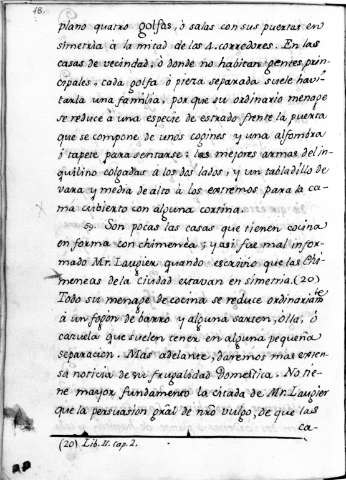 18.
plano quatro golfas, ò salas con sus puertas en
simetria à la mitad de los 4. corredores. En las
casas de vecindad, ò donde no habitan gentes prin-
copales, cada golfa ò pieza separada suele havi-
tarla una familia, porque su ordinario menage
se reduce à una especie de estrado frente la puerta
que se compone de unos copines y una alfombra
ò tapete para sentarse: las mejores armas del in-
quilino colgadas à los dos lados, y un tabladillo de
vara y media de alto à los extremos para la ca-
ma cubierto con alguna cortina.
59. Son pocas las casas que tienen cocina
en forma con chimenèa; y asi fue mal infor-
mado Mr. Laugier quando escrivio que las Chi-
meneas de la ciudad estavan en simetria. (20)
Todo su menage de cocina se reduce ordinariamte
à un fogòn de barro y alguna sarten, olla, ò
cazuela que suelen tener en alguna pequeña
separacion. Mas adelante, daremos mas esten-
sa noticia de su frugalidad domestica. No tie-
ne mayor fundamento la citada de Mr. Laugier
que la persuasion gral de nro vulgo, de que las
ca-
(20) Lib. II. cap. 2.